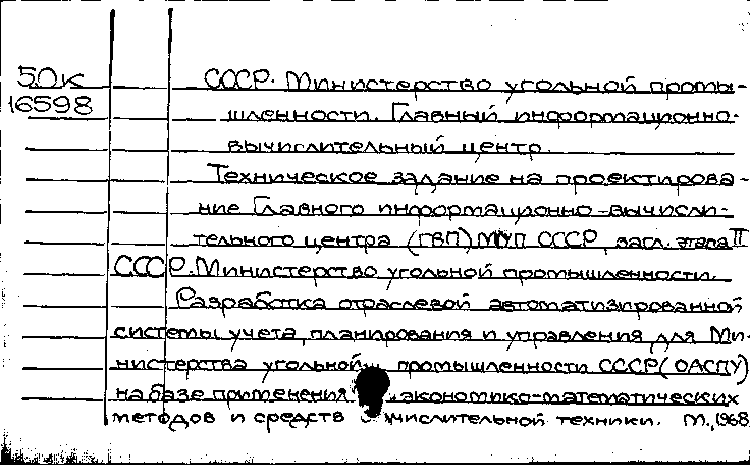 50к СССР. Министерство угольной промы-
16598 шленности. Главный информационно-
вычислительный центр.
Техническое задание на проектирова-
ние Главного информационно-вычисли-
тельного центра (ГВП) МУП СССР, загл. этапа II
СССР. Министерство угольной промышленности.
Разработка отраслевой автоматизированной
системы учета, планирования и управления для Ми-
нистерства угольной промышленности СССР (ОАСПУ)
на базе применения экономико-математических
методов и средств числительной техники. М., 1968